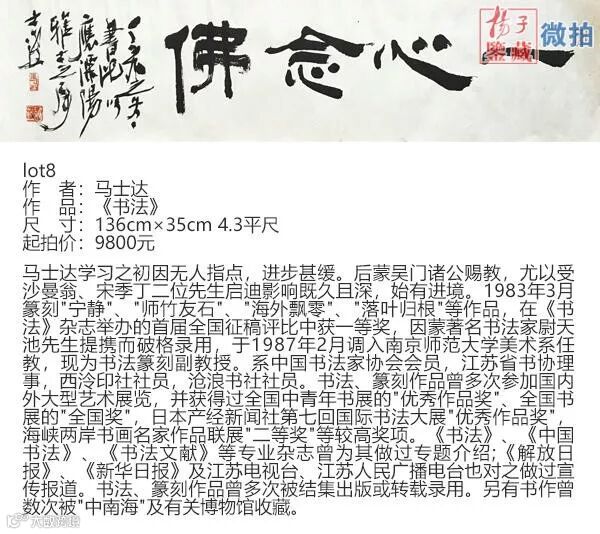 一心念佛
丁亥之冬
书此以
应溧阳
雅士之属
士达
扬子
鉴藏
微拍
lot8
作 者：马士达
作 品：《书法》
尺 寸：136cm×35cm 4.3平尺
起拍价：9800元
马士达学习之初因无人指点，进步甚缓。后蒙吴门诸公赐教，尤以受
沙曼翁、宋季丁二位先生启迪影响既久且深，始有进境。1983年3月
篆刻"宁静"、"师竹友石"、"海外飘零"、"落叶归根"等作品，在《书
法》杂志举办的首届全国征稿评比中获一等奖，因蒙著名书法家尉天
池先生提携而破格录用，于1987年2月调入南京师范大学美术系任
教，现为书法篆刻副教授。系中国书法家协会会员，江苏省书协理
事，西泠印社社员，沧浪书社社员。书法、篆刻作品曾多次参加国内
外大型艺术展览，并获得过全国中青年书展的"优秀作品奖"、全国书
展的"全国奖"，日本产经新闻社第七回国际书法大展"优秀作品奖"，
海峡两岸书画名家作品联展"二等奖"等较高奖项。《书法》、《中国
书法》、《书法文献》等专业杂志曾为其做过专题介绍;《解放日
报》、《新华日报》及江苏电视台、江苏人民广播电台也对之做过宣
传报道。书法、篆刻作品曾多次被结集出版或转载录用。另有书作曾
数次被"中南海"及有关博物馆收藏。